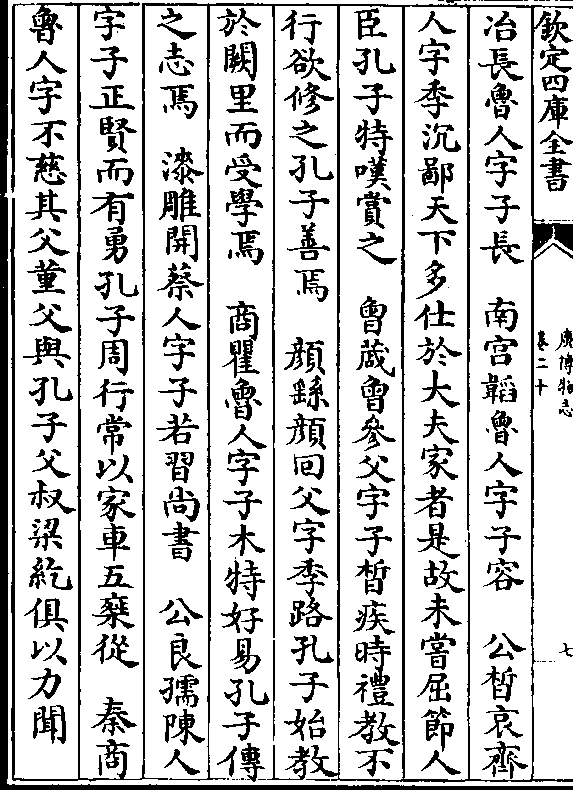 欽定四庫全書
廣博物志
卷二十
七
冶長魯人字子長　南宫韜魯人字子容　公晳哀齊
人字季沉鄙天下多仕於大夫家者是故未嘗屈節人
臣孔子特嘆賞之　曾蒧曾參父字子晳疾時禮教不
行欲修之孔子善焉　顔繇顔回父字季路孔子始教
於闕里而受學焉　商瞿魯人字子木特好易孔子傳
之志焉　漆雕開蔡人字子若習尚書　公良孺陳人
字子正賢而有勇孔子周行常以家車五椉從　秦商
魯人字不慈其父堇父與孔子父叔梁紇俱以力聞